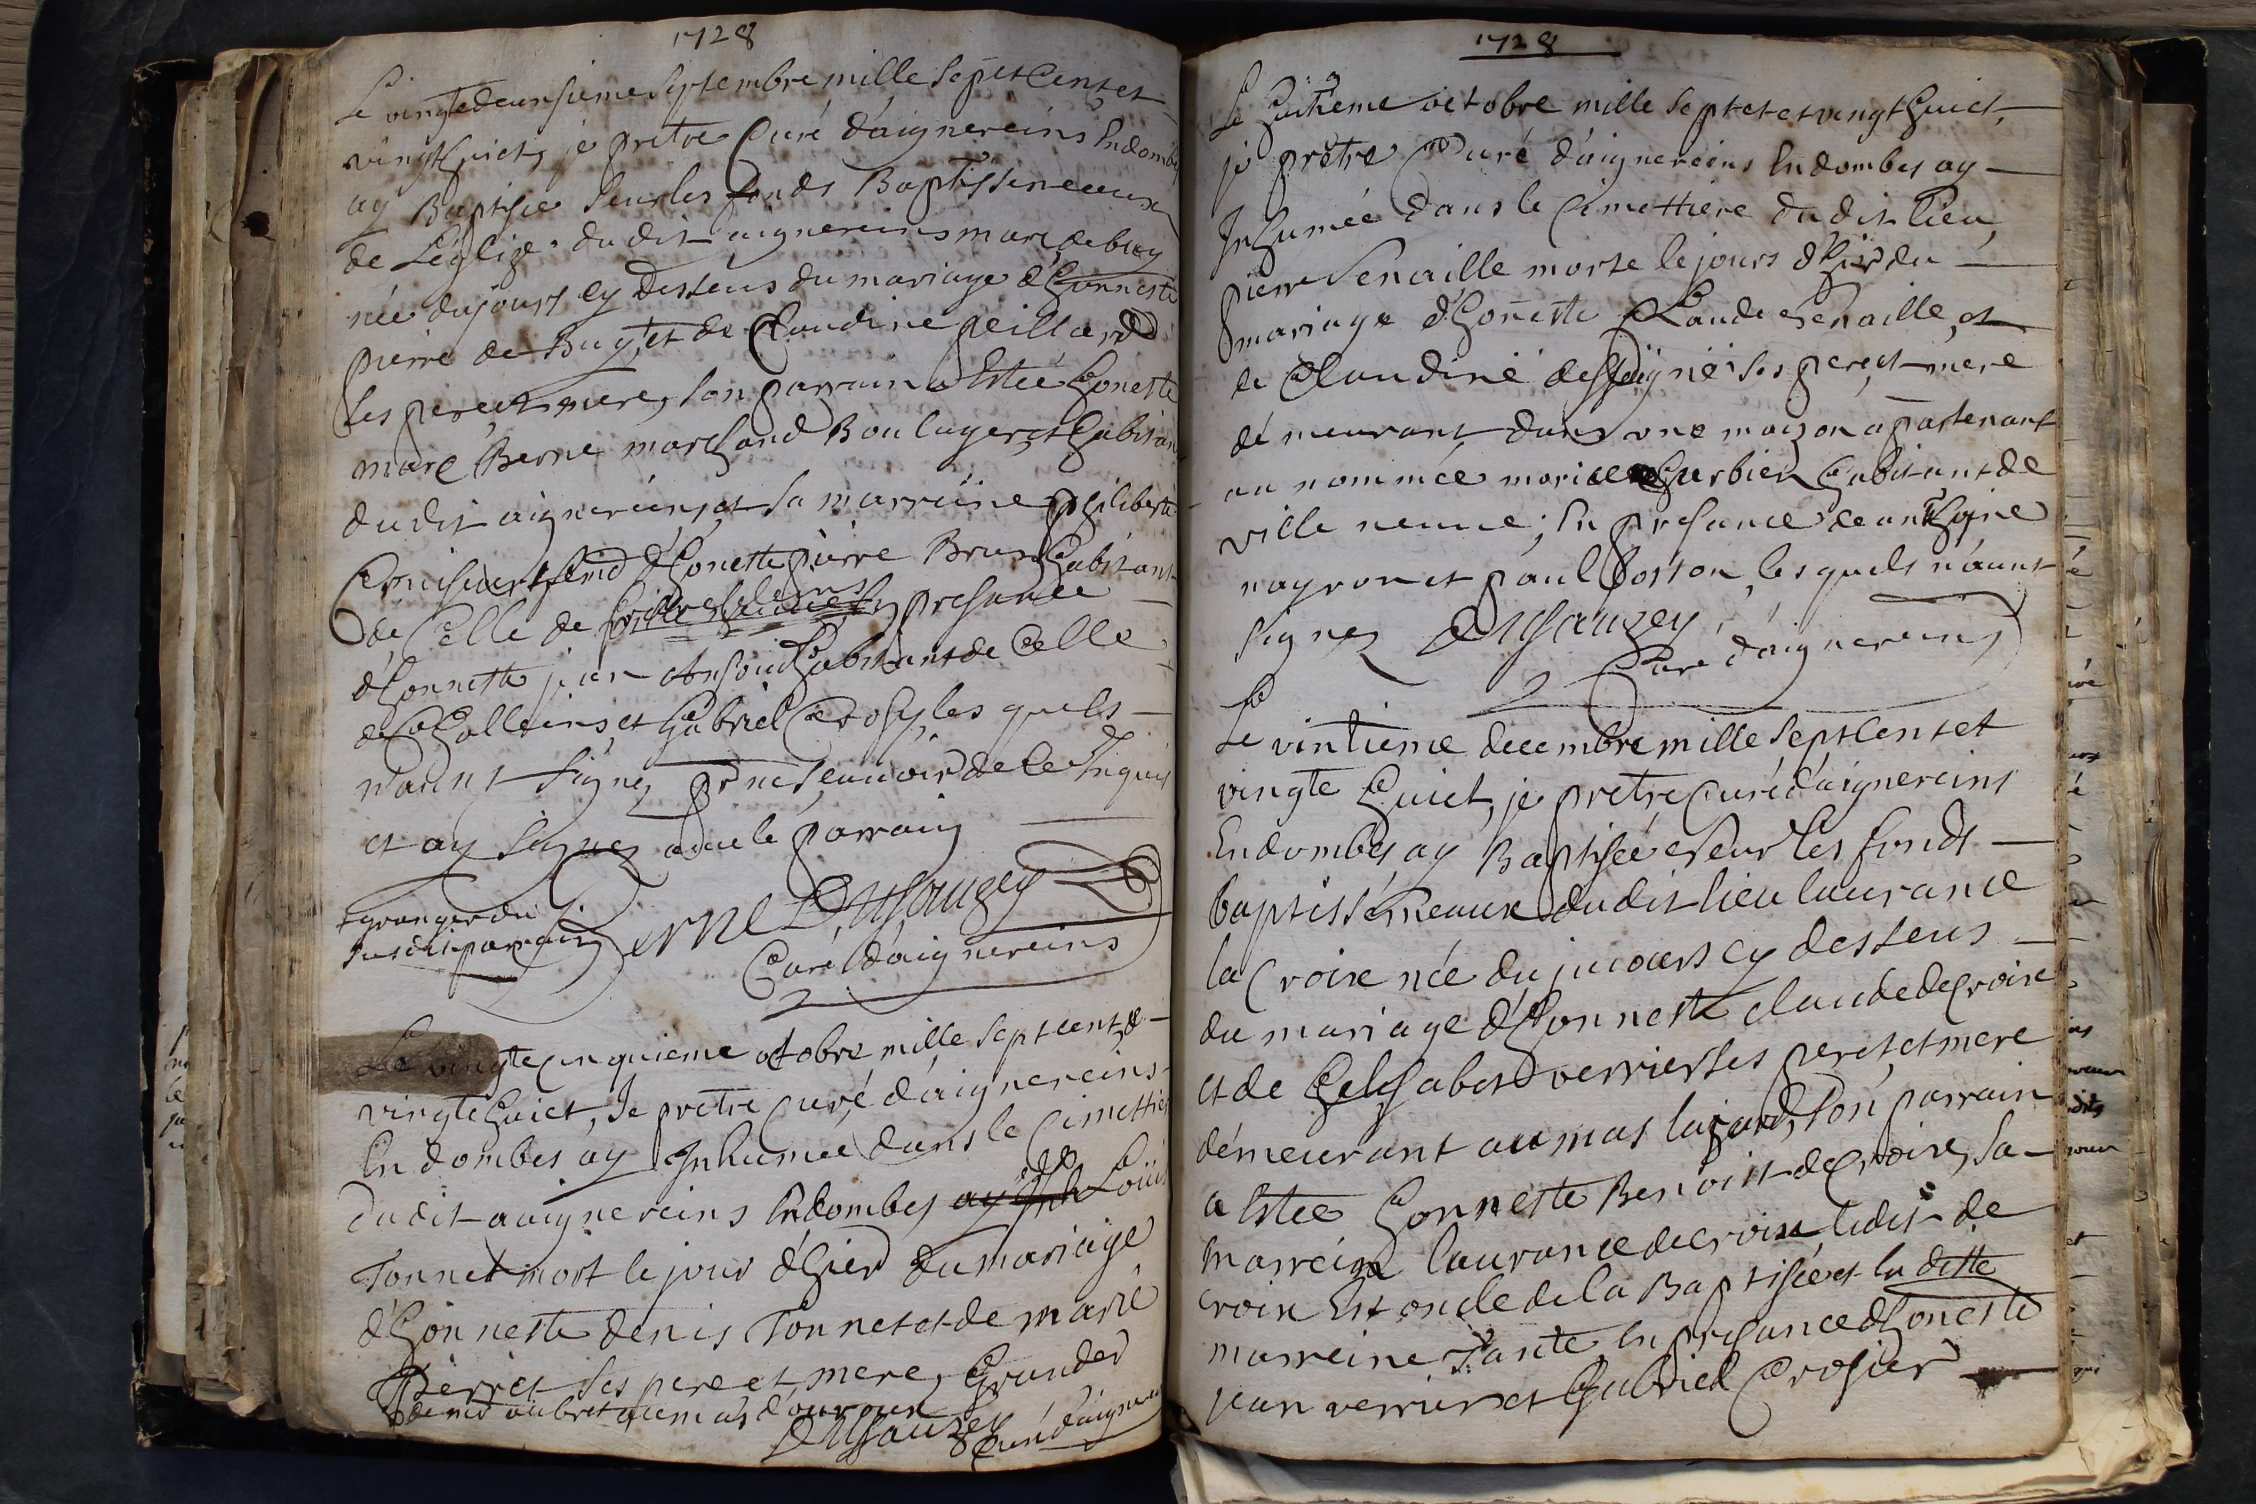 1728
Le vingtedeunsieme septembre mille sept Cent et
vingt huict, je pretre Curé d'aignereins En dombes
ay Baptisé Seur les fonds Baptissmeaux
de L'églize du dit aignereins marc de buy
née du jours cy desseus du mariage d'honneste
pierre de Buy, et de Claudine peillard
ses pere et mere, son parrain a Estée honeste
marc Berne marchand Boulager et habitan
du dit aignereins, et sa marreine philiberte
d'honette pierre Brun habitant
de Celle de En presance
d'honnette jean habitant de Celle
de et Gabriel les quels
n'aunt signez pr ne seauvoir de ce Inquis
et ay signez avec le parrain
granger du
susdit parrain
Berne Dusauzey
Curé d'aignereins
Le vingte cinquieme octobre mille sept cent &
vingte huict, Je pretre curé d'aignereins
En dombes ay Inhumée dans le cimettier
du dit aaignereins En dombes ay Inh Louis
Tonnet mort le jour d'hier du mariage
d'honneste denis Tonnet et de marie
Perret ses pere et mere, Grander
au mas
Dusauzey curé d'aignereins
1728
Le huitieme octobre mille sept et et vingt huict,
je prêtre Curé d'aignereins En dombes ay
Inhumée dans le Cimettiere du dit lieu
pierre Senaille morte le jours d'hier du
mariage d'honeste Claude Senaille, et
de Claudine ses pere et mere
démeurant dans vne maizon apartenant
au nommée habitant de
ville neuue; En presance de anthoine
nayron et paul Bosson, les quels n'aunt
signez Dusauzey
Curé d'aignereins
Le
Le vintieme decembre mille sept Cent et
vingte huict, je pretre Curé d'aignereins
En dombes ay Baptisée Seur les fonds
baptissemeaux du dit lieu laurance
la Croix née du juours cy desseus
du mariage d'honneste claude de Croix
et de Elisabet verrier ses peres et mere
démeurant au mas lajard, son parrain
a Estée honneste Benoist de Croix, sa
marreine laurance de croix ledit de
croix Est oncle de la Baptisée et la ditte
marreine Tante, En presance d'honeste
jean verrier et Gabriel Crosier